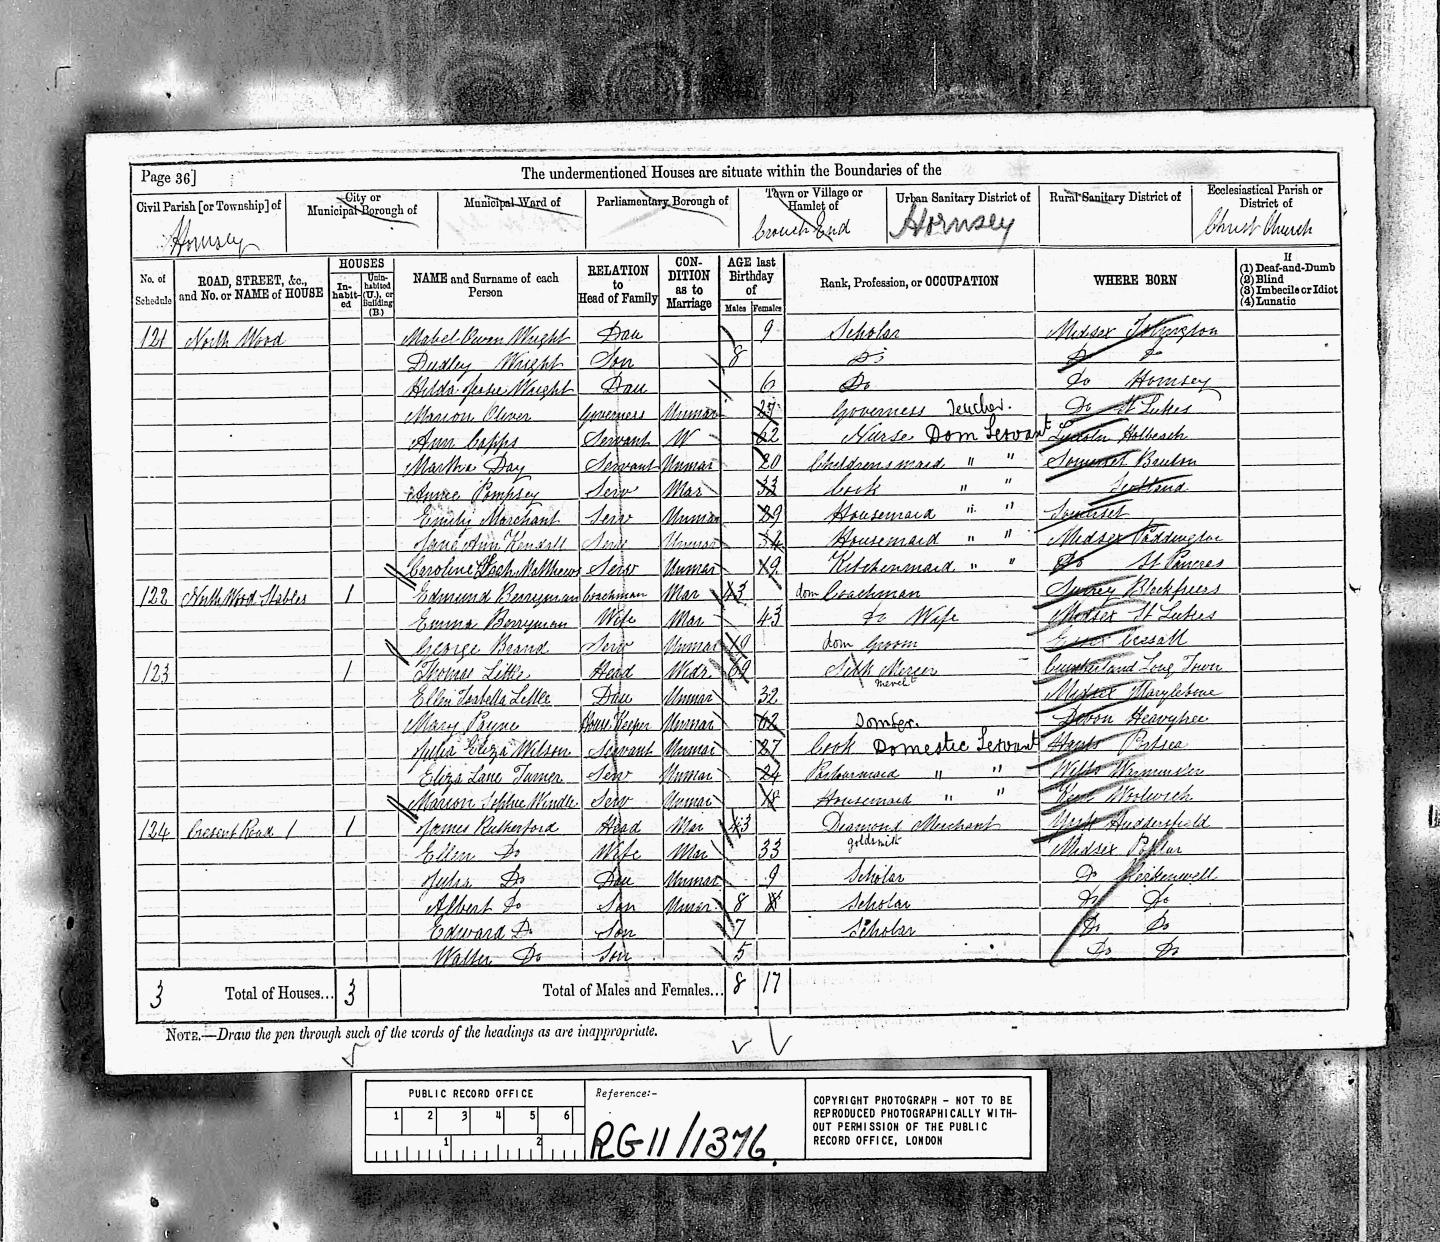 Page 36]
The undermentioned Houses are situate within the Boundaries of the
Civil Parish [or Township] of
City or Municipal Borough of
Municipal Ward of
Parliamentary Borough of
Town or Village or Hamlet of
Urban Sanitary District of
Rural Sanitary District of
Ecclesiastical Parish or District of
Hornsey
Crouch End
Hornsey
Christ Church
No. of Schedule
ROAD, STREET, &c., and No. or NAME of HOUSE
HOUSES
In-habit-ed
Unin-habited (U.), or Building (B.)
NAME and Surname of each Person
RELATION to Head of Family
CON-DITION as to Marriage
AGE last Birthday of
Males Females
Rank, Profession, or OCCUPATION
WHERE BORN
If
(1) Deaf-and-Dumb
(2) Blind
(3) Imbecile or Idiot
(4) Lunatic
121 North Wood Mabel Owen Wright Dau 9 Scholar Midsex
Dudley Wright Son 8 Do Do Do
Hilda Wright Dau 6 Do Do Hornsey
Marion Oliver Governess Unmar Governess Teacher. Do St Lukes
Ann Capps Servant W 62 Nurse Dom Servant Lincoln Holbeach
Martha Day Servant Unmar 20 Childrensmaid " " Somerset Bruton
Annie Pomphey Serv Mar 33 Cook " " Scotland
Emily Marchant Serv Unmar 29 Housemaid " " Somerset
Jane Ann Kendall Serv Unmar 34 Housemaid " " Midsex Paddington
Caroline Matthews Serv Unmar 19 Kitchenmaid " " Do St Pancras
122 North Wood Stables 1 Edmund Berryman Coachman Mar 43 dom Coachman Surrey Blackfriars
Emma Berryman Wife Mar 43 Do Wife Midsex St Lukes
George Brand Serv Unmar 19 dom Groom Essex
123 1 Thomas Little Head Widr 69 Silk Mercer Cumberland Long Town
Ellen Isabella Little Dau Unmar 32 Midsex Marylebone
Mary Payne House Keeper Unmar 62 Domser. Devon Heavytree
Julia Eliza Wilson Servant Unmar 27 Cook Domestic Servant Hants Portsea
Eliza Lane Turner Serv Unmar 24 Parlourmaid " " Wilts Warminster
Marion Sophie Windle Serv Unmar 18 Housemaid " " Kent Woolwich
124 Crescent Road 1 1 James Rutherford Head Mar 43 Diamond Merchant York Huddersfield
goldsmith
Ellen Do Wife Mar 33 Midsex Poplar
Julia Do Dau Unmar 9 Scholar Do Clerkenwell
Albert Do Son Unmar 8 Scholar Do Do
Edward Do Son 7 Scholar Do Do
Walter Do Son 5 Do Do
3 Total of Houses... 3 Total of Males and Females... 8 17
NOTE.—Draw the pen through such of the words of the headings as are inappropriate.
PUBLIC RECORD OFFICE
1 2 3 4 5 6
1 2
Reference:-
RG 11/1376
COPYRIGHT PHOTOGRAPH - NOT TO BE
REPRODUCED PHOTOGRAPHICALLY WITH-
OUT PERMISSION OF THE PUBLIC
RECORD OFFICE, LONDON